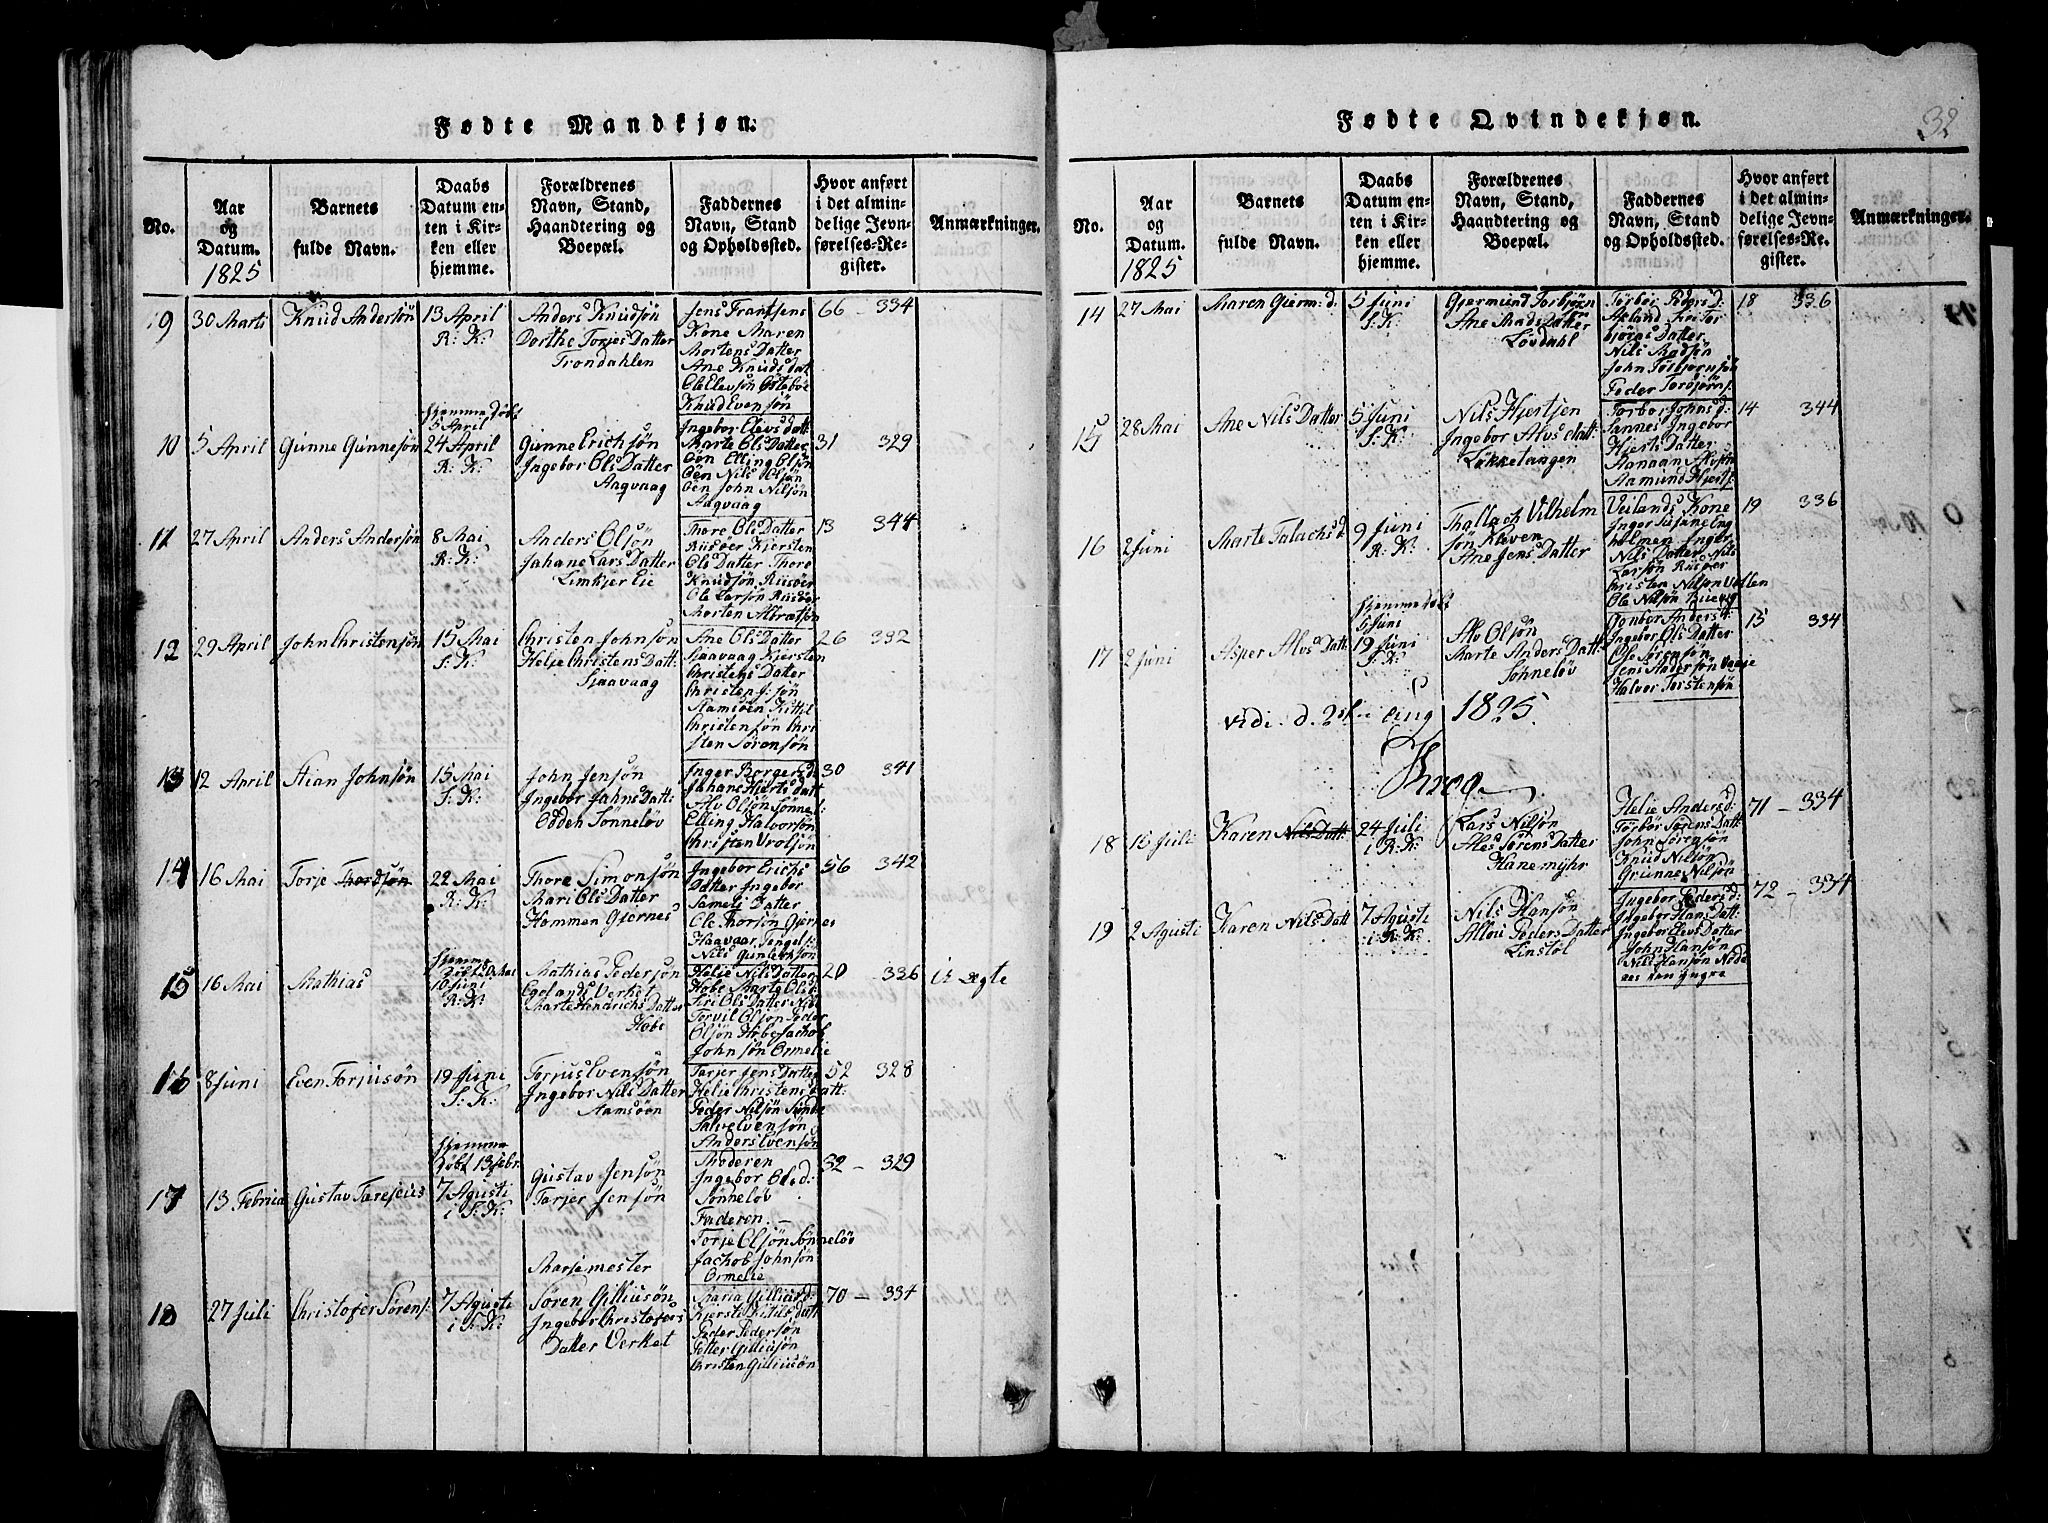 Fødte Mandkjøn.
No.
Aar
og
Datum.
1825
Barnets
fulde Navn.
Daabs
Datum en-
ten i Kir-
ken eller
hjemme.
Forældrenes
Navn, Stand,
Haandtering og
Boepæl.
Faddernes
Navn, Stand
og Opholdssted.
Hvor anført
i det almin-
delige Jevn-
førelses-Re-
gister.
Anmærkninger.
9
30 Marti
Knud Andersøn
13 April
R: K:
Anders Knudsøn
Dorthe Torjes Datter
Trondahlen
Jens Frantsens
Kone Maren
Mortens Datter
Ane Knuds dat
Ole Elevsøn Østebøe
Knud Evensøn
66 - 334
10
5 April
Gunne Gunnesøn
hjemme døbt
5 April
24 April
R: K:
Gunne Erichsøn
Ingebor Ols Datter
Aaqvaag
Ingebor Elevs datt
Marte Ols Datter
Øen Elling Olsøn
Øen Nils Olsøn
Øen John Nilsøn
Aaqvaag
31 329
11
27 April
Anders Andersøn
8 Mai
R: K:
Anders Olsøn
Jahane Lars Datter
Limkjer Eie
Thore Ols Datter
Riisøer Kjersten
Ols Datter Thore
Knudsøn Riisøer
Ole Larsøn Riisøer
Morten Albretsøn
13 344
12
29 April
John Christensøn
15 Mai
S: K:
Christen Johnsøn
Helje Christens Datt:
Sjaavaag
Ane Ols Datter
Sjaavaag Kjersten
Christens Datter
Christen J: søn
Ramsøen Kittil
Christensøn Chri
sten Sørensøn
26 332
13
12 April
Stian Johnsøn
15 Mai
S: K:
John Jensøn
Ingebor Jahns Datt:
Odden Sønneløv
Inger Borgers d
Jahane Hjerts Datt
Alv Olsøn Sønnel:
Elling Halvorsøn
Christen Vrolsøn
30 341
14
16 Mai
Torje Thordsøn
22 Mai
R: K:
Thore Simonsøn
Mari Ols Datter
Hommen Gjernes
Ingebor Erichs
Datter Ingebor
Samels Datter
Ole Thorsøn Gjernes
Haavaar Tengels:
Nils Gunlechsøn
56 342
15
16 Mai
Mathias
hjemme
døbt 20 Mai
10 Juni
R: K:
Mathias Pedersøn
Egelands Verket
Marte Hendrichs Datter
Hobe
Helie Nils Datter
Hobe Marte Ols d
Siri Ols Datter Nibe
Torvil Olsøn Peder
Olsøn Hobe Jachob
Johnsøn Ormelie
20 - 336
Uægte
16
8 Juni
Even Torjusøn
19 Juni
S: K:
Torjus Evensøn
Ingebor Nils Datter
Aamsøen
Tarjer Jens Datter
Helie Christens Datt:
Peder Nilsøn Sønde
Salve Evensøn
Anders Evensøn
52 328
17
13 Februa
Gustav Tereseus
hjemme
døbt 13 febr.
7 Agusti
i S: K:
Gustav Jensøn
Tarjer Jensøn
Marie mester
Moderen
Ingebor Ols d:
Sønneløv
Faderen
Torje Olsøn Sønneløv
Jachob Johnsøn
Ormelie
32 - 329
18
27 Juli
Christofer Sørens:
7 Agusti
i S: K:
Søren Gilliusøn
Ingebor Christofers
Datter Verket
Maria Gillius d:
Kjersti Kitils datt
Peder Pedersøn
Petter Gilliusøn
Christen Gilliusøn
70 - 334
Fødte Qvindekjøn.
32
No.
Aar
og
Datum.
1825
Barnets
fulde Navn.
Daabs
Datum en-
ten i Kir-
ken eller
hjemme.
Forældrenes
Navn, Stand,
Haandtering og
Boepæl.
Faddernes
Navn, Stand
og Opholdssted.
Hvor anført
i det almin-
delige Jevn-
førelses-Re-
gister.
Anmærkninger.
14
27 Mai
Maren Gierm: d.
5 Juni
S: K:
Gjermund Torbjørn
Ane Mads Datter
Løvdahl
Torbør Peders d:
bjørgs Datter
Nils Madsøn
John Torbjørnsøn
Peder Torbjørns:
18 336
15
28 Mai
Ane Nils Datter
5 Juni
S: K:
Nils Hjertsen
Ingebor Alvs datt:
Løkketangen
Torbor Johns d:
Sannes Ingebor
Hjerts Datter
Aanaan Alvsøn
Aamund Hjerts:
14 344
16
2 Juni
Marte Talachs d
9 Juni
R: K:
Thallach Vilhelm
søn Kaven
Ane Jens Datter
Veilands Kone
Inger Susane Eng
holmen Inger
Nils Datter Nils
Larsøn Riisøer
Christen Nilsøn Vollen
Ole Nilsøn
19 336
17
2 Juni
Asper Alvs Datt:
hjemme døbt
5 Juni
19 Juni
S: K:
Alv Olsøn
Marte Anders Datt:
Sønneløv
Gonbor Anders d:
Ingebor Ols Datter
Ole Sørensøn
Jens Andersøn Vaaje
Halvor Torstensøn
15 334
vidi d. 2 1825.
Krog
18
15 Juli
Karen Nils Datt:
24 Juli
i R: K:
Lars Nilsøn
Ales Sørens Datter
Hanemyhr
Helie Anders d:
Torbør Sørens Datt:
John Sørensøn
Knud Nilsøn
Grunne Nilsøn
71 - 334
19
2 Agusti
Karen Nils Datt
7 Agusti
i R: K:
Nils Hansøn
Allou Peders Datter
Linstøl
Ingebor Peders d:
Ingebor Hans Datt:
Ingebor Elevs Datter
John Hansøn
Nils Hansøn Nede
nes den yngre
72 - 334